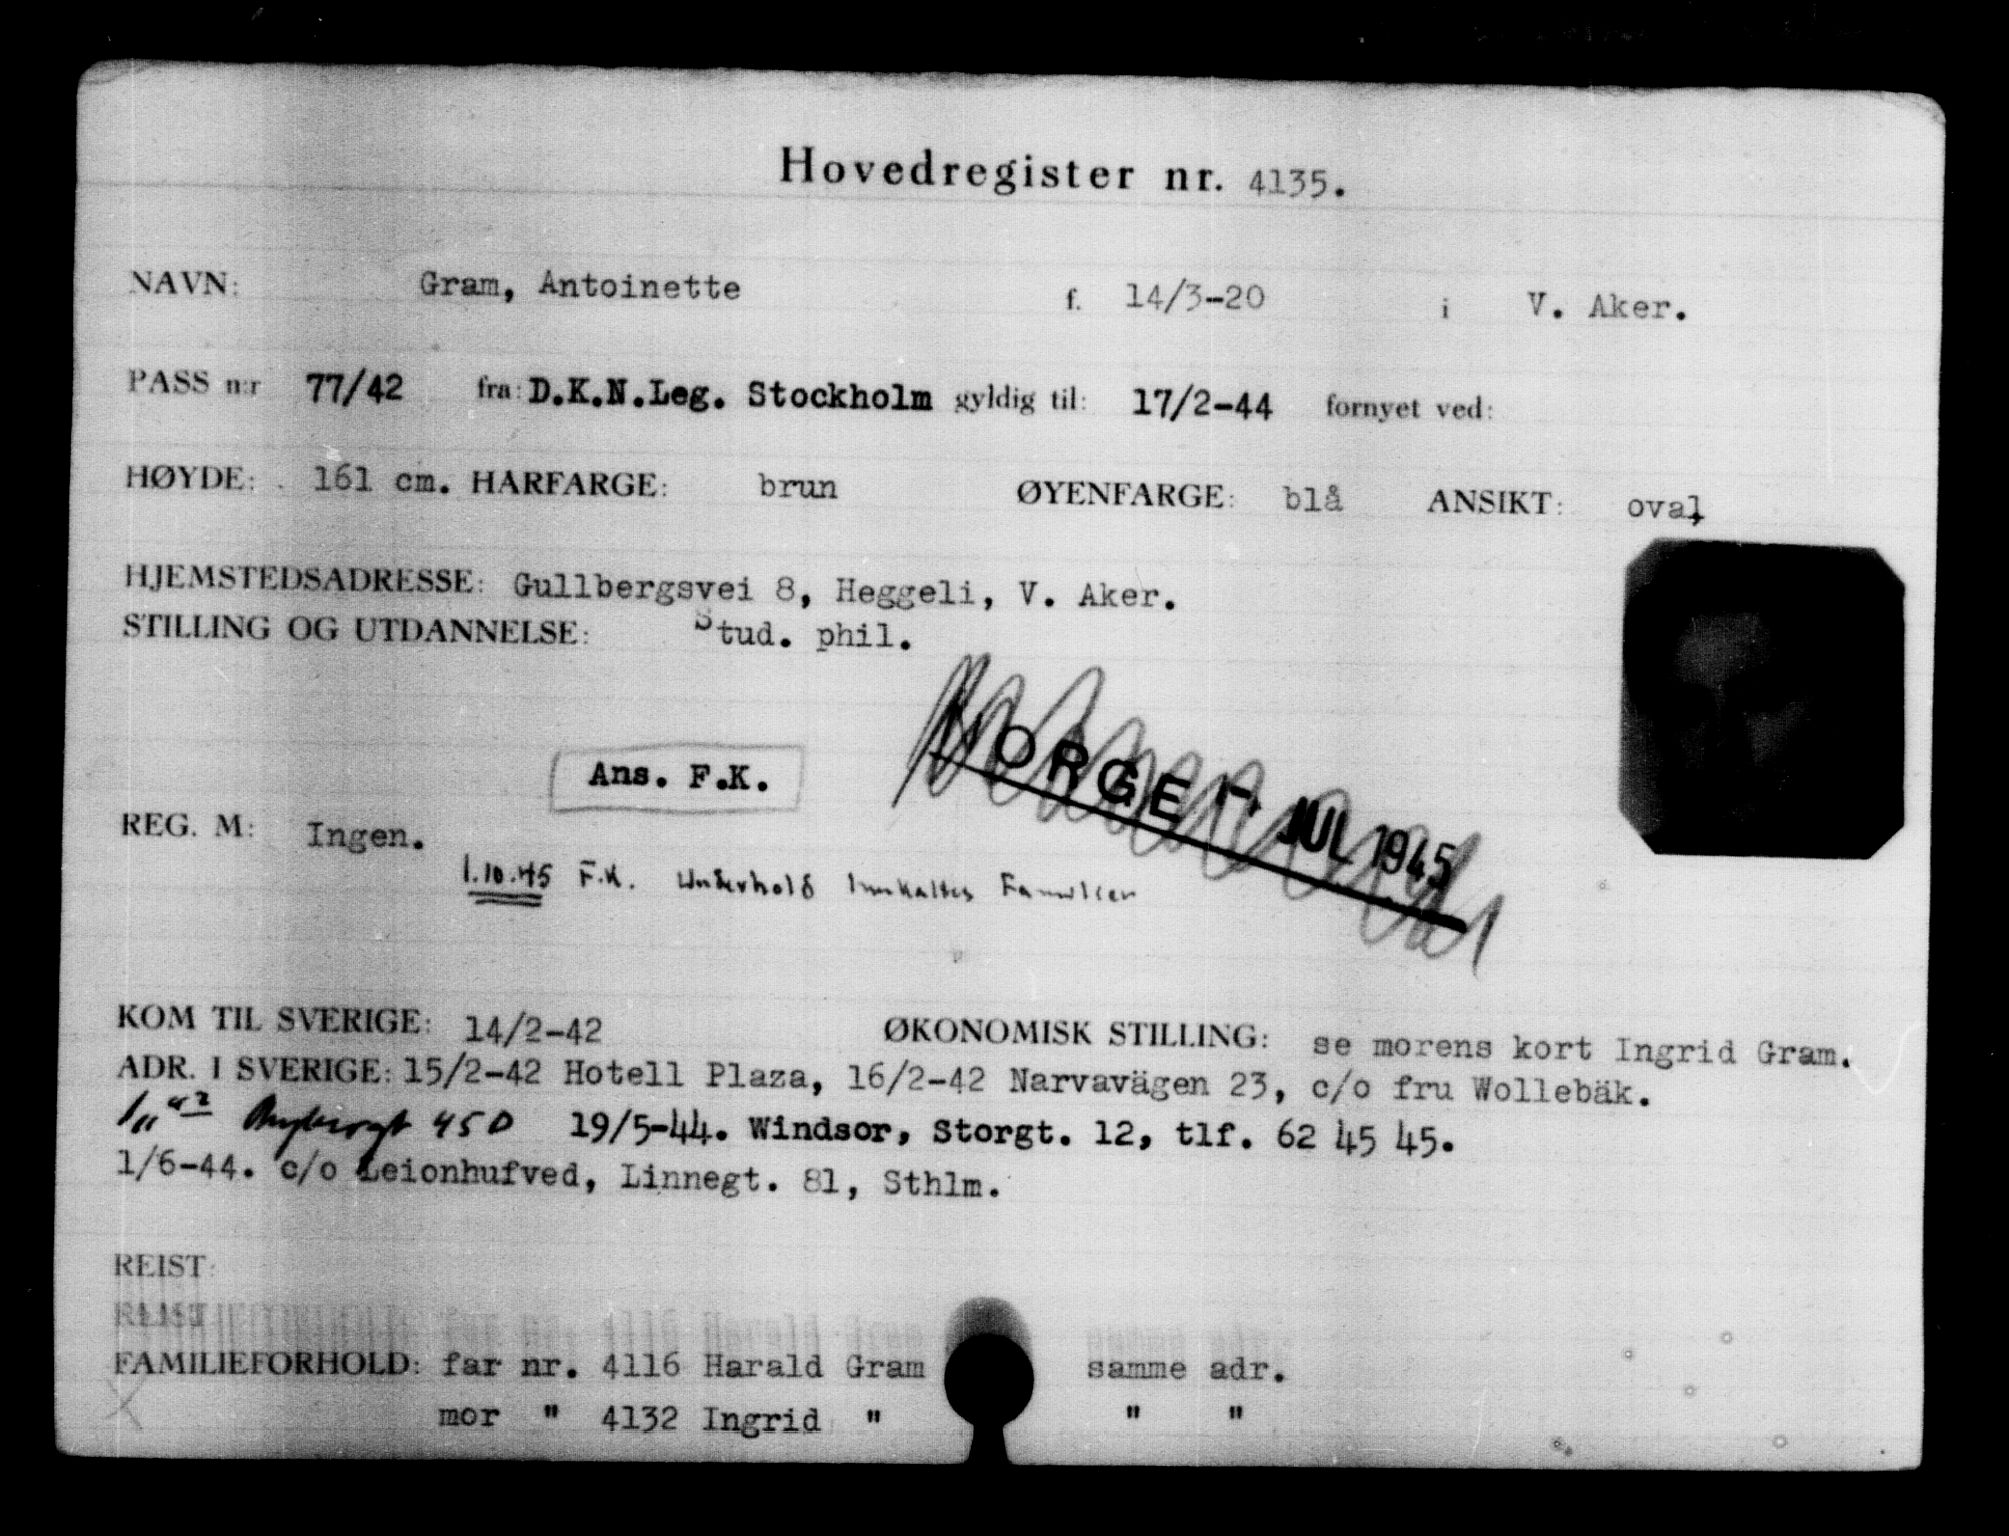 Hovedregister nr. 4135.
NAVN: Gram, Antoinette f. 14/3-20 i V. Aker.
PASS n:r 77/42 fra: D.K.N.Leg. Stockholm gyldig til: 17/2-44 fornyet ved:
HØYDE: 161 cm. HARFARGE: brun ØYENFARGE: blå ANSIKT: oval
HJEMSTEDSADRESSE: Gullbergsvei 8, Heggeli, V. Aker.
STILLING OG UTDANNELSE: Stud. phil.
NORGE 17. JUL 1945
Ans. F.K.
REG. M: Ingen.
1.10.45 F.K. Underhold Innkaltes Familien
KOM TIL SVERIGE: 14/2-42 ØKONOMISK STILLING: se morens kort Ingrid Gram.
ADR. I SVERIGE: 15/2-42 Hotell Plaza, 16/2-42 Narvavägen 23, c/o fru Wollebäk.
45 D 19/5-44. Windsor, Storgt. 12, tlf. 62 45 45.
1/6-44. c/o Leionhufved, Linnegt. 81, Sthlm.
REIST:
REIST
FAMILIEFORHOLD: far nr. 4116 Harald Gram samme adr.
mor " 4132 Ingrid " " "